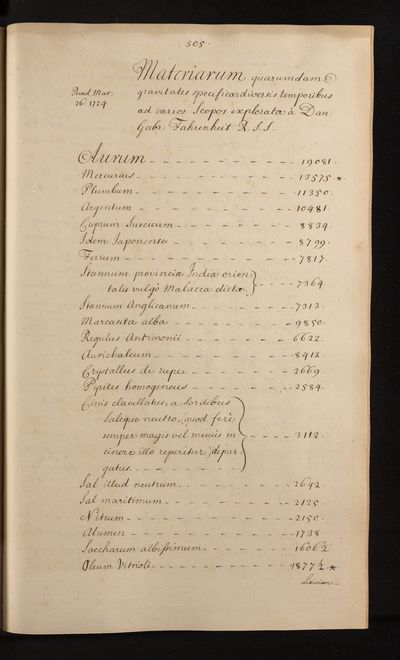 505.
Materiarum quarumdam
Read Mar. gravitates specificæ diversis temporibus
26 1724 ad varios Scopos exploratæ à Dan.
Gabr. Fahrenheit R.S.S.
Aurum - - - - - - - - - 19081.
Mercurius - - - - - - - - - 13575 *
Plumbum - - - - - - - - - 11350.
Argentum - - - - - - - - - 10481.
Cuprum Suecicum - - - - - - - 8834.
Idem Japonense - - - - - - - 8799.
Ferrum - - - - - - - - - 7817.
Stannum provinciæ Indiæ orien
talis vulgò Malacca dictæ. } - - - - 7364.
Stannum Anglicanum - - - - - - 7313.
Marcasita alba - - - - - - - 9850.
Regulus Antimonii - - - - - - 6622.
Aurichalcum - - - - - - - 8412.
Crystallus de rupe - - - - - - 2669.
Pyrites homogeneus - - - - - - 2584.
Cinis clavellatus, a Sordibus
Saleque neutro, (quod ferè
semper magis vel minùs in - - - - 3112.
cinere illo reperitur) depur
gatus. - - - - - - -
Sal illud neutrum - - - - - - 2642.
Sal maritimum - - - - - - - 2125.
Nitrum - - - - - - - - - 2150.
Alumen - - - - - - - - - 1738.
Saccharum albissimum - - - - - 1606½
Oleum Vitrioli - - - - - - - 1877½ *
Lixivium